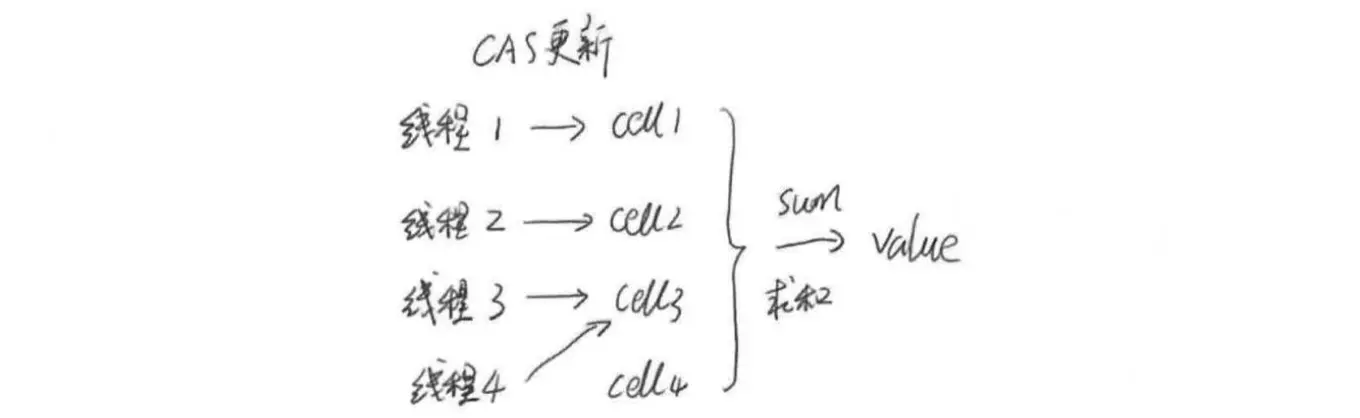 CAS更新
线程1 → cell1
线程2 → cell2
sum
→ value
线程3 → cell3
求和
线程4 cell4